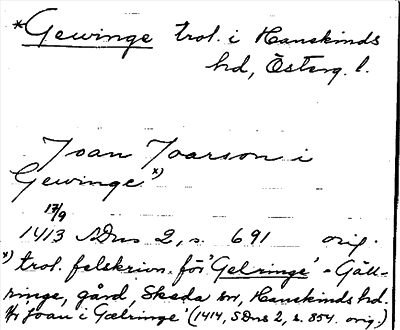 *Gewinge trol. i Hanekinds
hd, Österg. l.
Joan Joarson i
Gewinge x)
17/9
1413 SDns 2, s. 691 orig.
x) trol. felskrivn. för 'Gelringe' = Gäll-
ringe, gård, Skeda sn, Hanekinds hd.
Jfr 'Joan i Gælringe' (1414, SDns 2, s. 854. orig.)